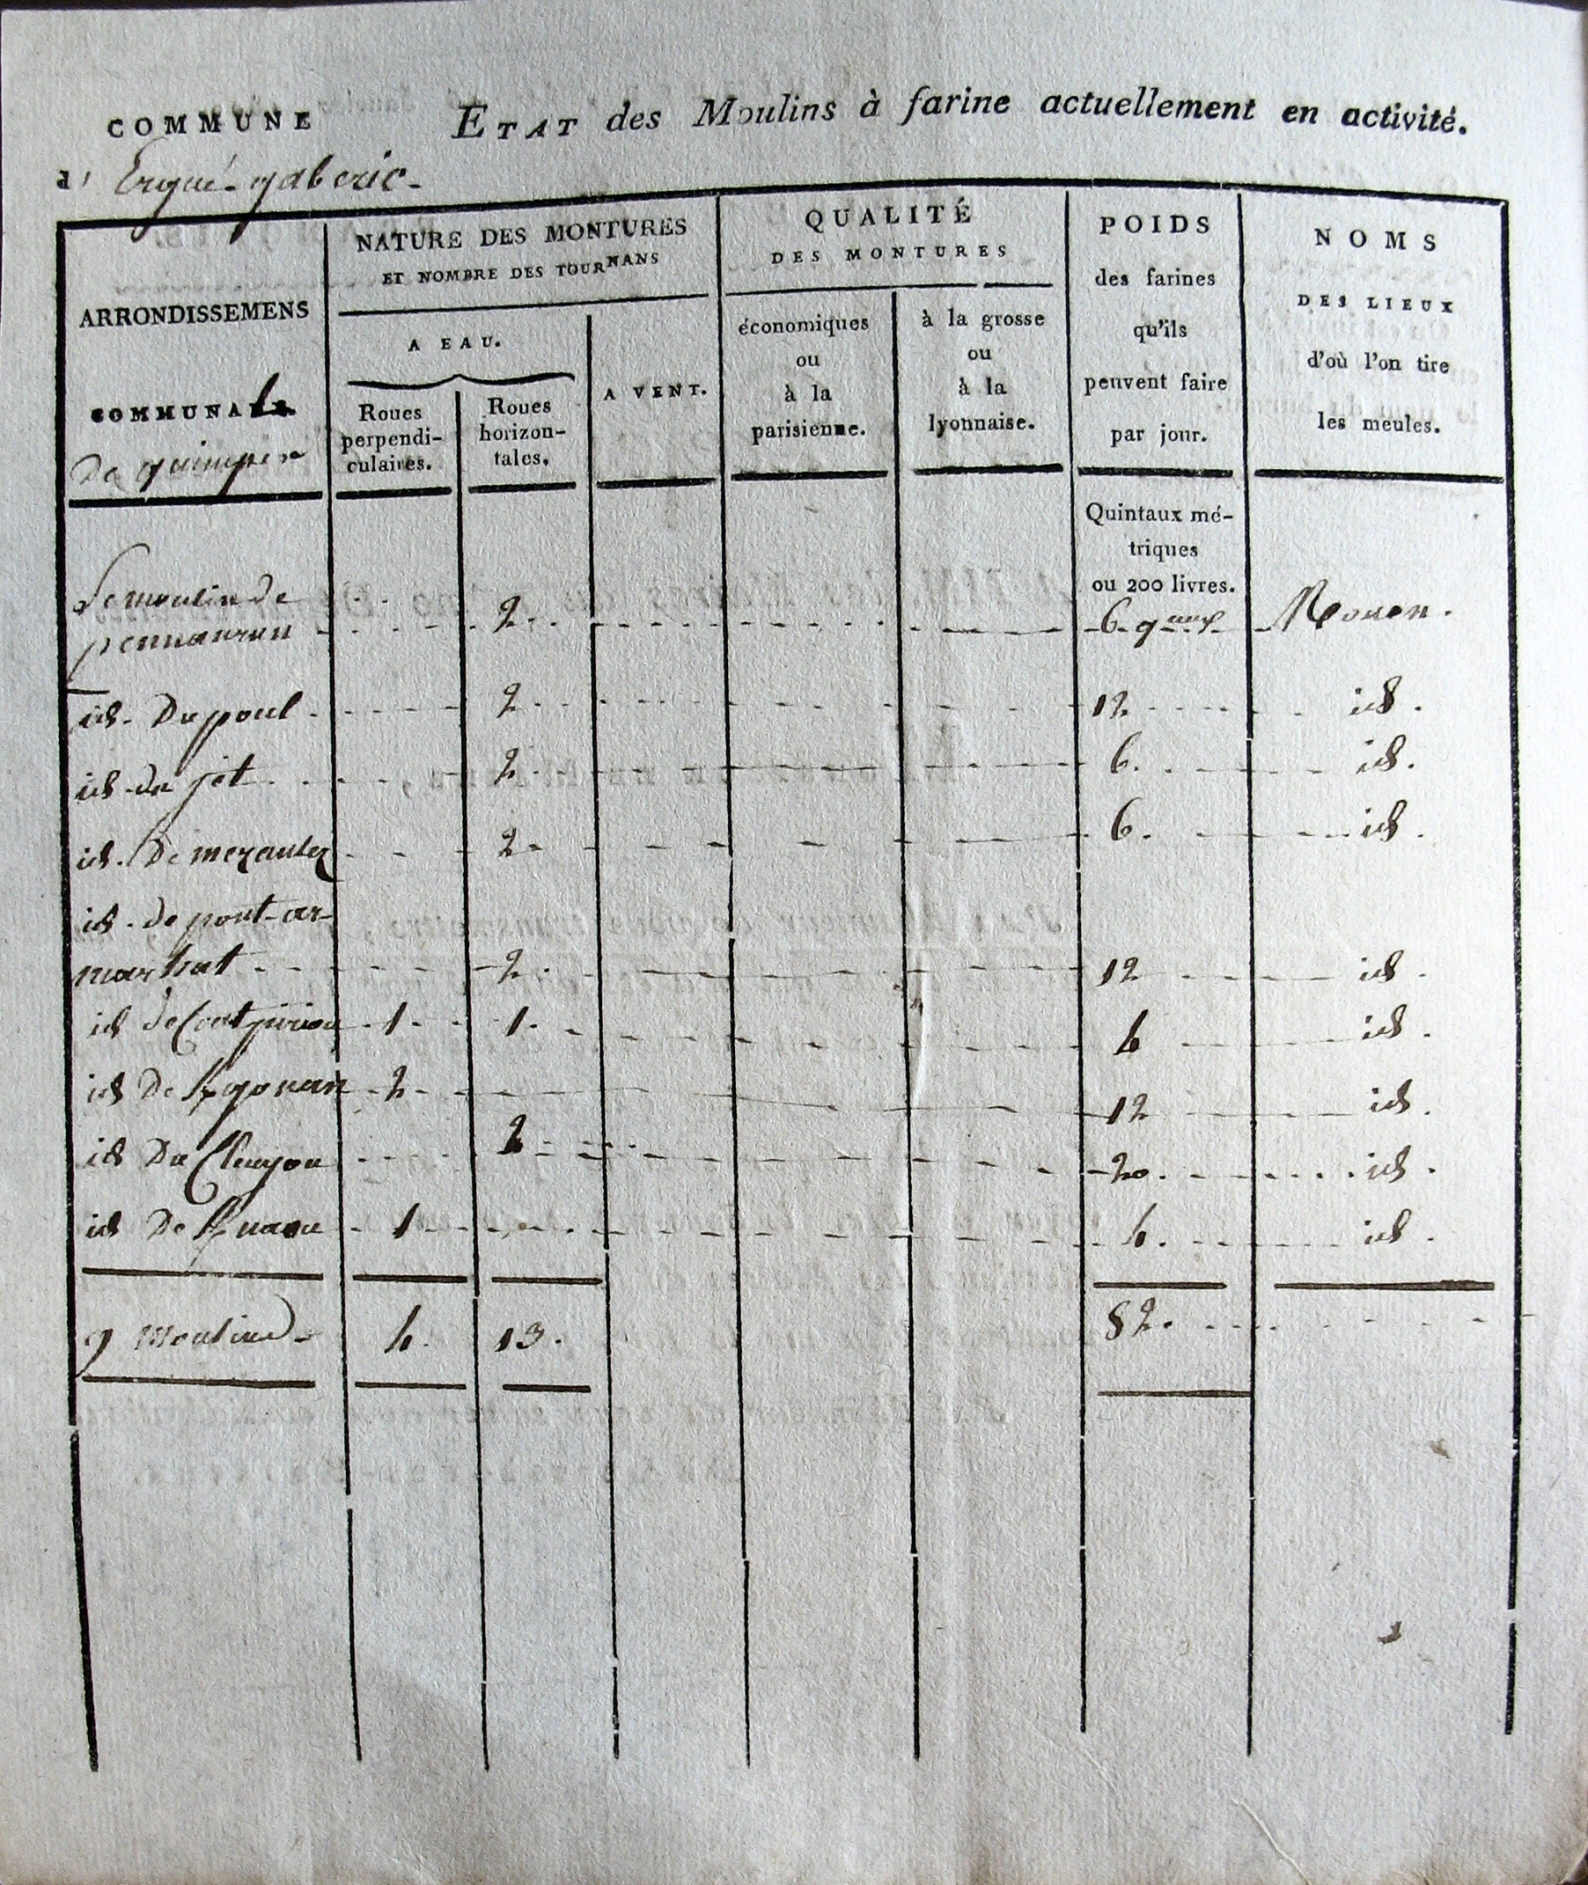 COMMUNE ETAT des Moulins à farine actuellement en activité.
d' Ergué-gaberic-
ARRONDISSEMENS
COMMUNALE
De quimper
NATURE DES MONTURES
ET NOMBRE DES TOURNANS
A EAU.
Roues
perpendi-
culaires.
Roues
horizon-
tales.
A VENT.
QUALITÉ
DES MONTURES
économiques
ou
à la
parisienne.
à la grosse
ou
à la
lyonnaise.
POIDS
des farines
qu'ils
peuvent faire
par jour.
NOMS
DES LIEUX
d'où l'on tire
les meules.
Quintaux mé-
triques
ou 200 livres.
Le moulin de
pennanrun 2 6 qaux Rouen.
id. Du poul 2 12 id.
id. du jet 2 6. id.
id. De mezanlez 2 6. id.
id. de pont-ar-
marhat 2 12 id.
id de Coutpiriou 1. 1. 6 id.
id De Kgonan 2 12 id.
id Du Cleuyou 2 20. id.
id De Knaou 1 6. id.
9 Moulins 4. 13. 82.